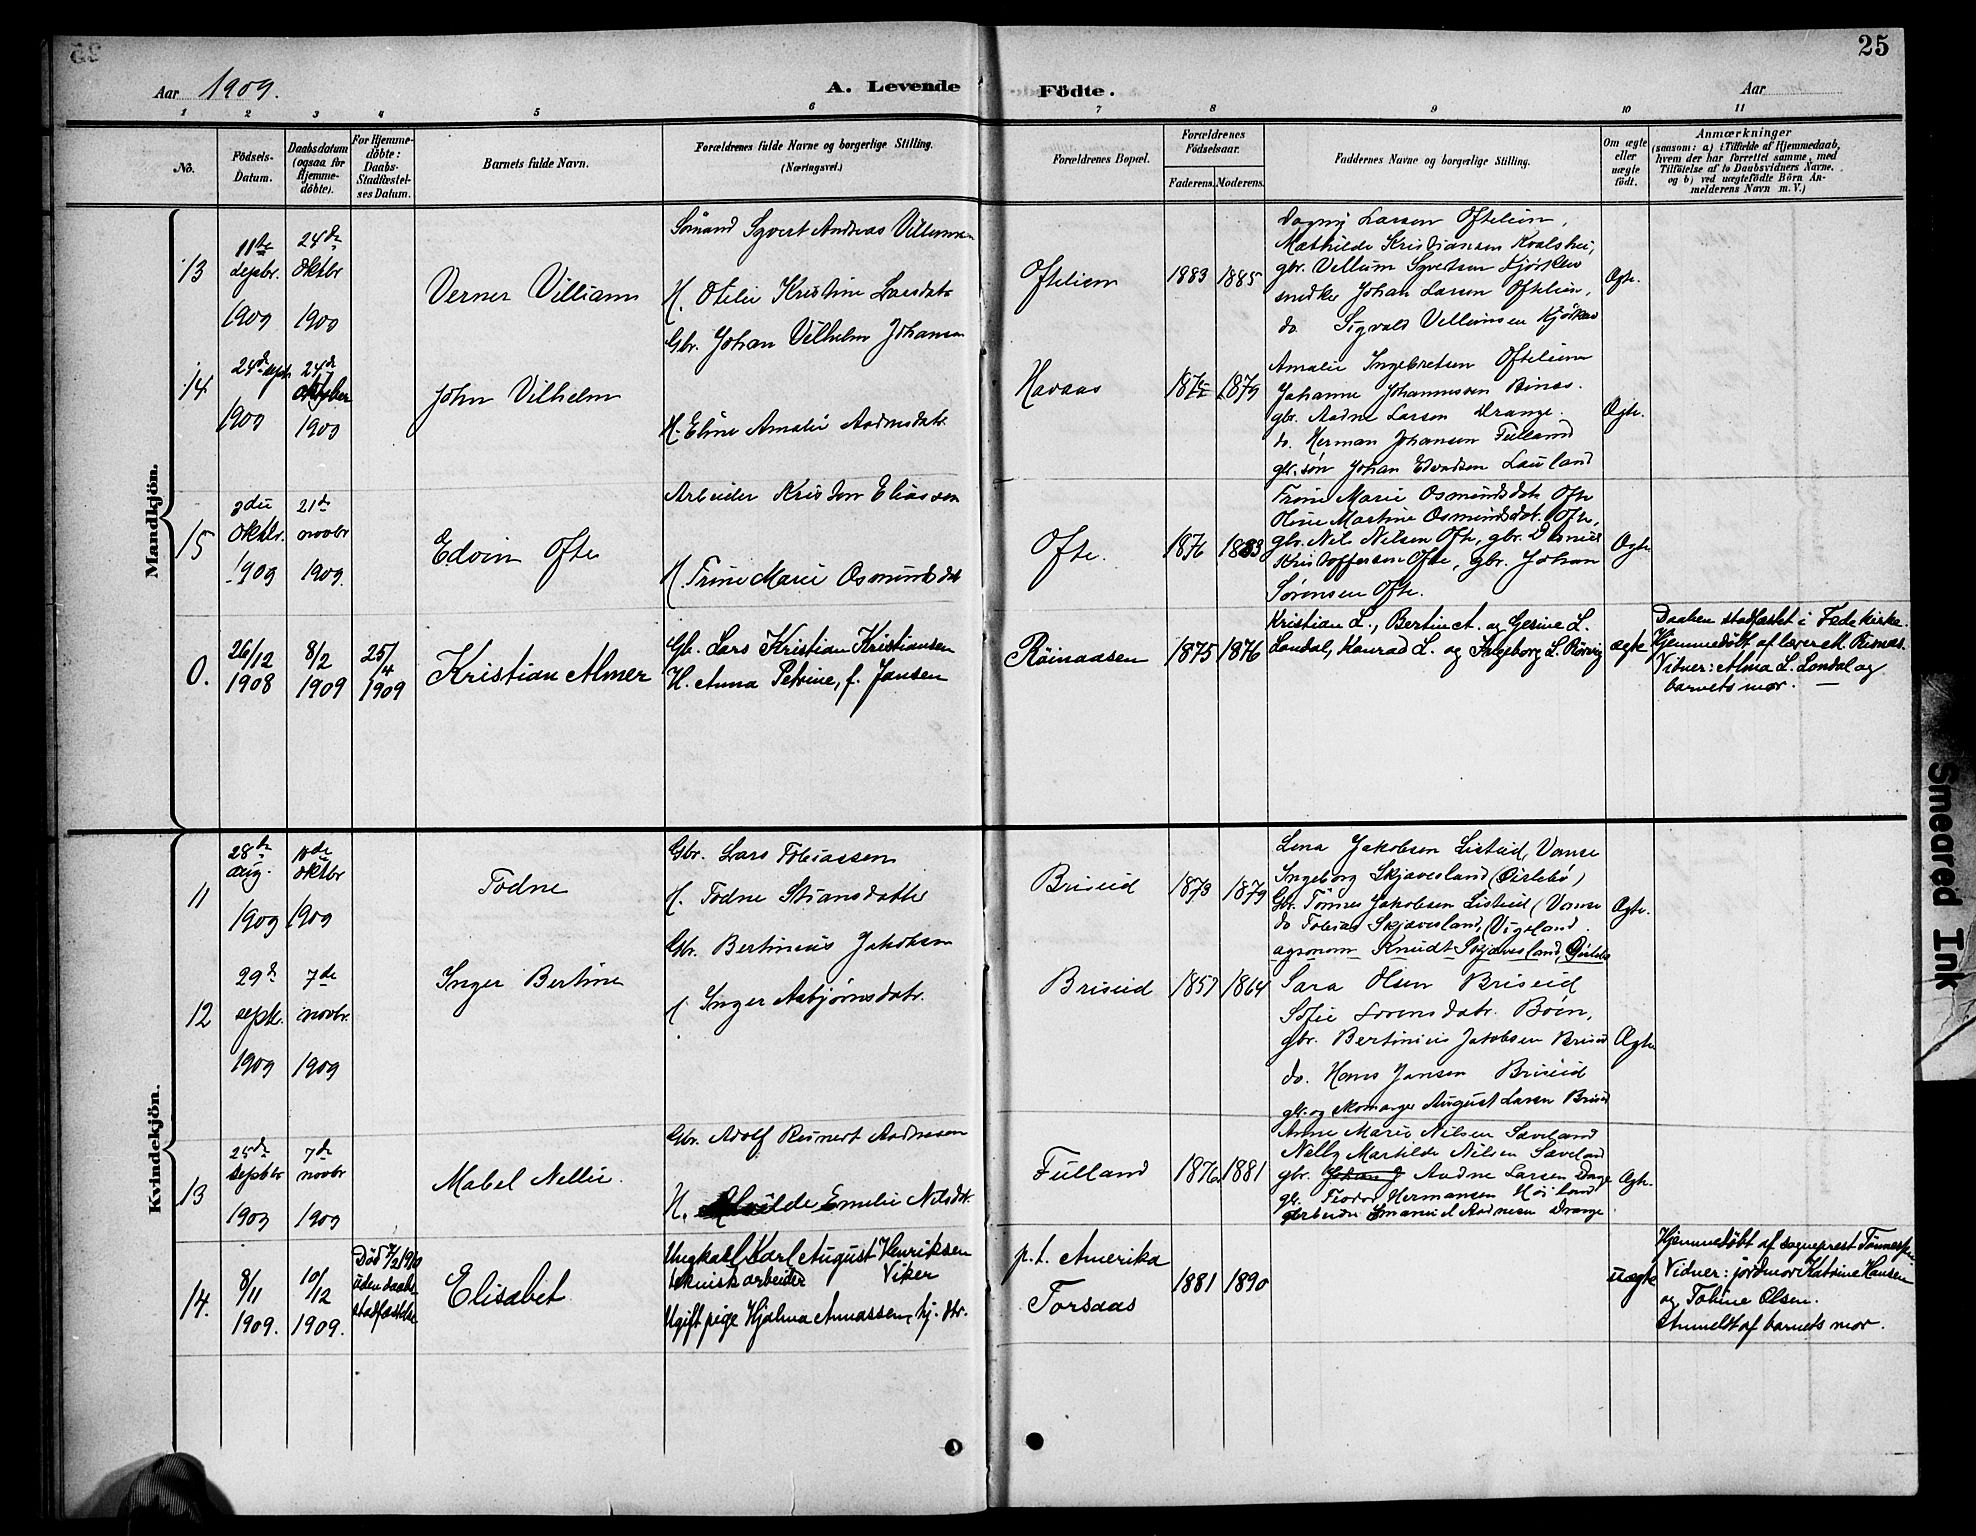 25
Aar 1909.
A. Levende Födte.
Aar
1 2 3 4 5 6 7 8 9 10 11
No.
Födsels-Datum.
Daabsdatum (ogsaa for Hjemme-döbte).
For Hjemme-döbte: Daabs-Stadfæstel-ses Datum.
Barnets fulde Navn.
Forældrenes fulde Navne og borgerlige Stilling. (Næringsvei.)
Forældrenes Bopæl.
Forældrenes Födselsaar.
Faderens. Moderens.
Faddernes Navne og borgerlige Stilling.
Om ægte eller uægte födt.
Anmærkninger
(saasom: a) i Tilfælde af Hjemmedaab,
hvem der har forrettet samme, med
Tilföielse af to Daabsvidners Navne,
og b) ved uægtefödte Börn An-
melderens Navn m. V.)
Mandkjön.
13
11te septbr. 1909
24de oktbr 1909
Verner Villiam
Sömand Syvert Andreas Villumsen
H. Otilie Kristine Larsdatr
Oftelien
1883 1885
Dagny Larsen Oftelien,
Mathilde Kristiansen Kvalshei,
gbr. Villum Syvertsen Kjörkleo
snedker Johan Larsen Oftelien,
do Sigvald Villumsen
Ægte.
14
24de septr 1909
24de oktober 1909
John Vilhelm
Gbr. Johan Vilhelm Johansen
H. Eline Amalie Aadnesdatr.
Havaas
1879
Amalie Ingebretsen Oftelien
Johanne Johannessen Risnes.
gbr. Aadne Larsen Drange.
do. Herman Johansen Fulland
gbr. sön Johan Edvardsen Lauland
Ægte.
15
oktbr. 1909
21de novbr 1909.
Edvin Ofte
Arbeider Kristen Eliassen
H. Trine Marie Osmundsdatr
Ofte.
1876 1883
Trine Marie Osmundsdatr Ofte
Oline Martine Osmundsdat. Ofte,
gbr. Nils Nilsen Ofte, gbr. Daniel
Kristoffersen Ofte, gbr. Johan
Sörensen Ofte.
Ægte
0.
26/12 1908
8/2 1909
25/4 1909
Kristian Almer
Gb. Lars Kristian Kristiansen
H. Anna Petrine, f. Jansen
Röinaasen
1875 1876
Kristian L., Bertine A. og Gesine L.
Londal, Konrad L. og Ingeborg L. Rörvig
ægte
Daaben stadfæstet i Fede kirke.
Hjemmedöbt af lærer M. Risnæs.
Vidner: Alma L. Londal og
barnets mor.
Kvindekjön.
11
28de aug. 1909
10de oktbr 1909
Todne
Gbr. Lars Tobiassen
H. Todne Stiansdatter
Briseid
1873 1879
Lena Jakobsen Listeid, Vanse
Ingeborg Skjævesland (Öislebö)
Gb. Tönnes Jakobsen Listeid (Vanse
do Tobias Skjævesland, (Vigeland
agronom Knudt Skjævesland, Öisleb
Ægte.
12
29de septr. 1909
7de novbr. 1909
Inger Bertine
Gbr. Bertinius Jakobsen
H Inger Asbjörnsdatr.
Briseid
1857 1864
Sara Olsen Briseid
Sofie Lorensdatr. Böen,
gbr. Bertinius Jakobsen Briseid
do. Hans Jansen Briseid
gbr. og skomager August Larsen Briseid
Ægte
13
25de septbr 1909
7de novbr 1909
Mabel Nellie.
Gbr. Adolf Reinert Aadnesen
H. Emelie Nilsdtr.
Fulland
1876 1881
Anne Marie Nilsen Sæveland
Nelly Martilde Nilsen Sæveland
gbr. Aadne Larsen Drange
gb. Teodor Hermansen Höiland
arbeider Emanuel Aadnesen Drange
Ægte.
14.
8/11 1909.
10/12 1909.
Död 1910 uden daabs stadfæstelse
Elisabet
Ungkarl Karl August Henriksen
teknisk arbeider Viker
Ugift pige Hjalma Amassen, hj. dtr.
p.t. Amerika
Torsaas
1881 1890
uægte
Hjemmedöbt af sogneprest Tönnessen
Vidner: jordmor Katrine Hansen
og Tobine Olsen.
Anmeldt af barnets mor.
Smeared Ink